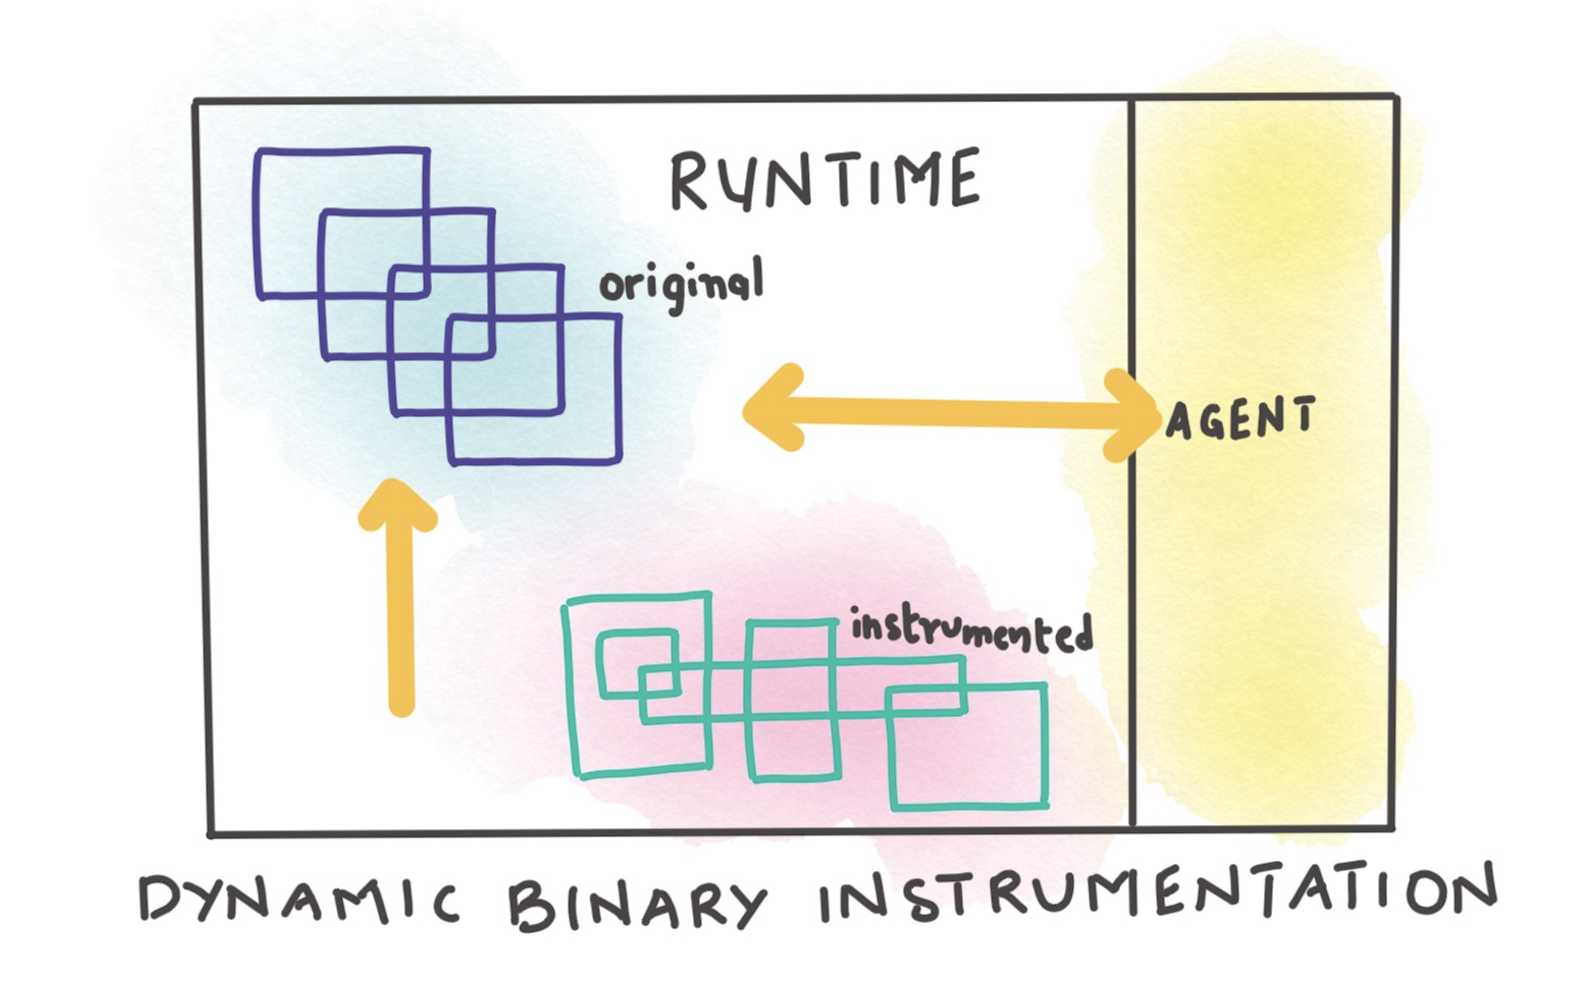 RUNTIME
original
AGENT
instrumented
DYNAMIC BINARY INSTRUMENTATION